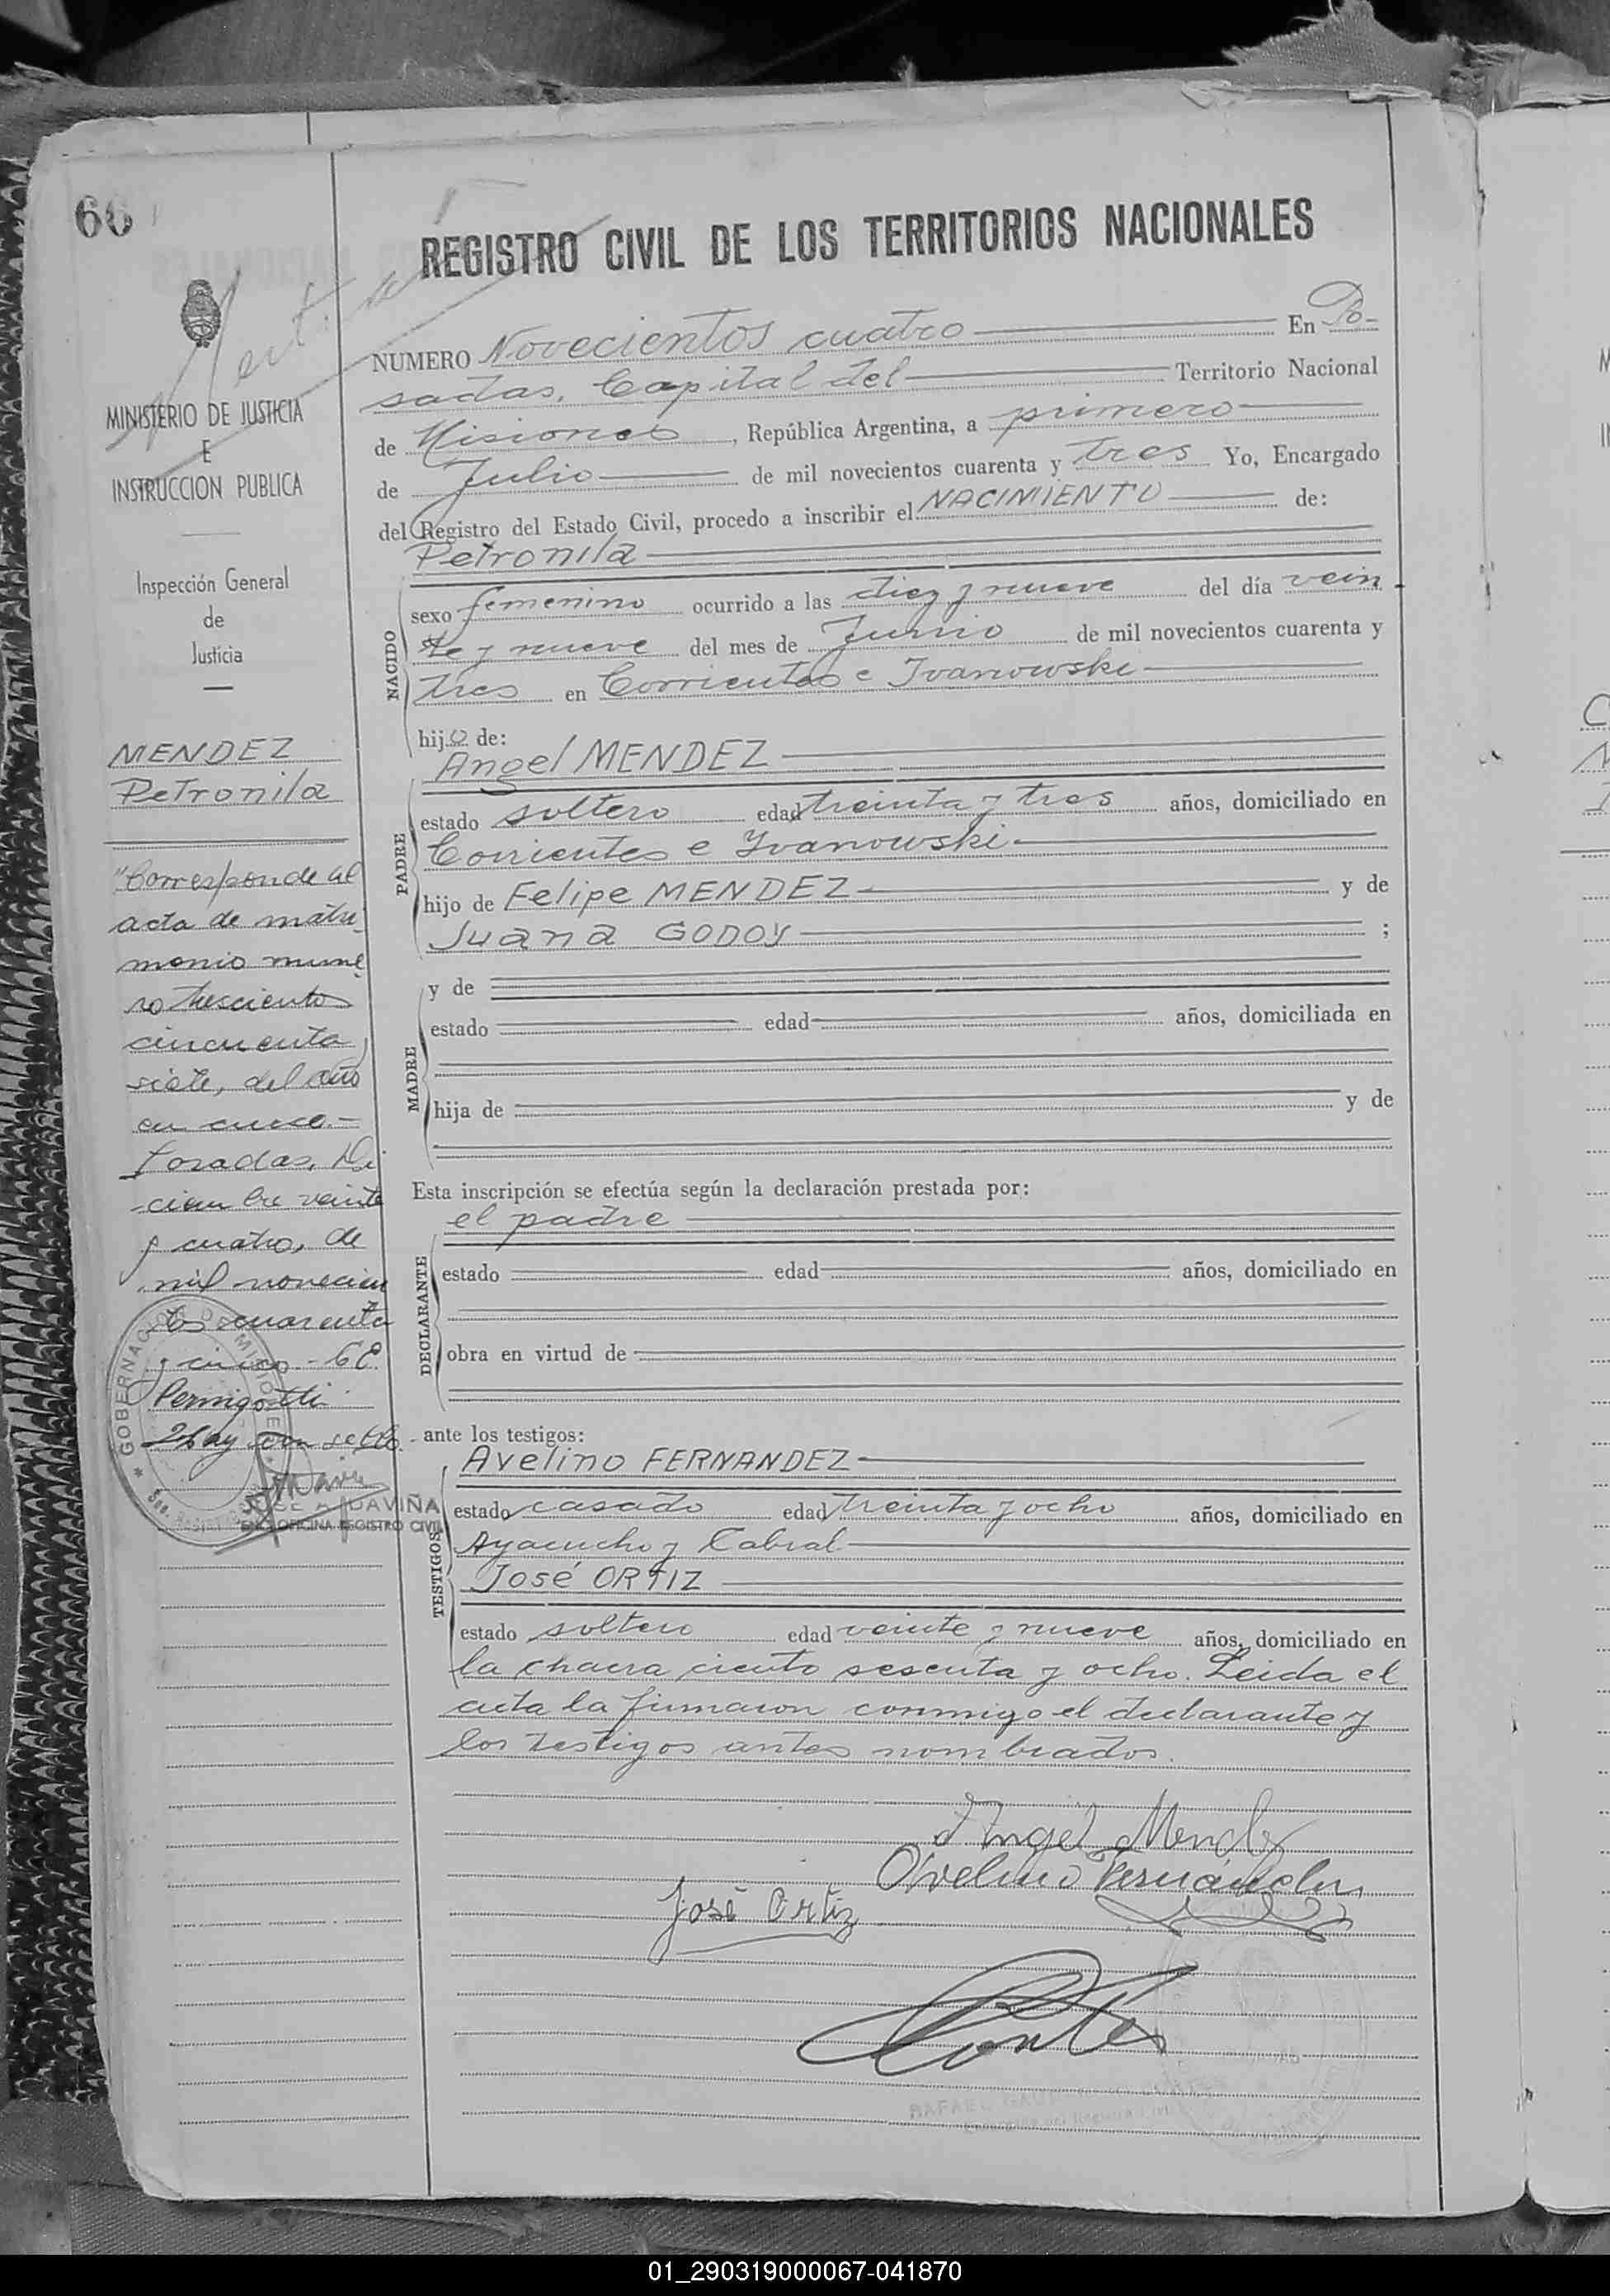 66
REGISTRO CIVIL DE LOS TERRITORIOS NACIONALES
MINISTERIO DE JUSTICIA
E
INSTRUCCION PUBLICA
Inspección General
de
Justicia
MENDEZ
Petronila
"Corresponde al
acta de matri
monio núme
ro trescientos
cincuenta
siete, del año
en curso.-
Posadas, Di
ciembre veinte
y cuatro, de
mil novecien
tos cuarenta
y cinco.-
Pernigotti
Hay un sello.-
GOBERNACION DE MISIONES
JOSE A. DAVIÑA
ENC. OFICINA REGISTRO CIVIL
NUMERO Novecientos cuatro En Po-
sadas, Capital del Territorio Nacional
de Misiones, República Argentina, a primero
de Julio de mil novecientos cuarenta y tres Yo, Encargado
del Registro del Estado Civil, procedo a inscribir el NACIMIENTO de:
Petronila
NACIDO
sexo femenino ocurrido a las diez y nueve del día vein-
te y nueve del mes de Junio de mil novecientos cuarenta y
tres en Corrientes e Ivanowski
hijo de:
Angel MENDEZ
PADRE
estado soltero edad treinta y tres años, domiciliado en
Corrientes e Ivanowski
hijo de Felipe MENDEZ y de
Juana GODOY ;
MADRE
y de
estado edad años, domiciliada en
hija de y de
Esta inscripción se efectúa según la declaración prestada por:
el padre
DECLARANTE
estado edad años, domiciliado en
obra en virtud de
ante los testigos:
Avelino FERNANDEZ
TESTIGOS
estado casado edad treinta y ocho años, domiciliado en
Ayacucho y Cabral
José ORTIZ
estado soltero edad veinte y nueve años, domiciliado en
la chacra ciento sesenta y ocho. Leida el
acta la firmaron conmigo el declarante y
los testigos antes nombrados.
Angel Mendez
Avelino Fernández
José Ortiz
RAFAEL
01_290319000067-041870